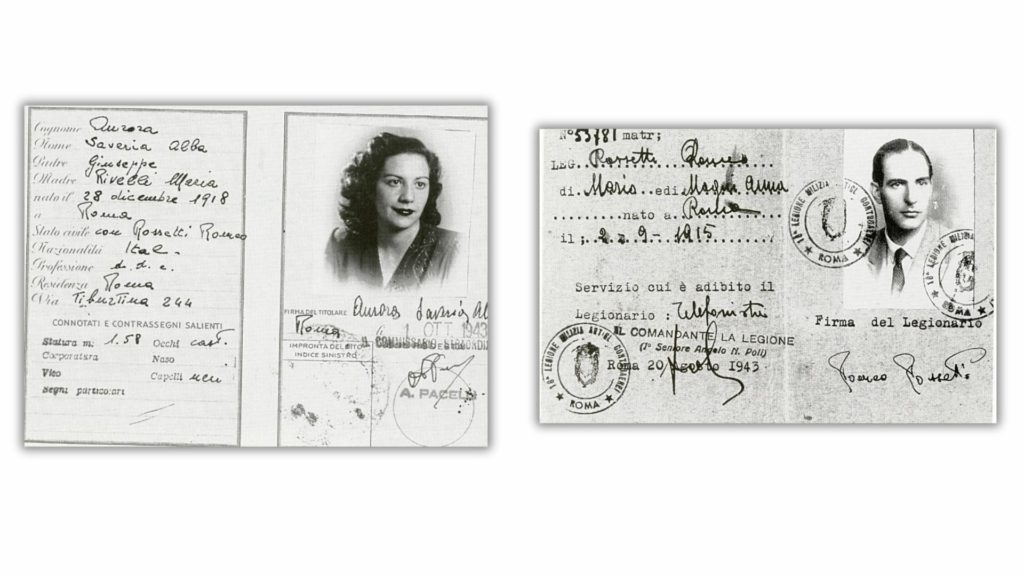 Cognome Aurora
Nome Saveria Alba
Padre Giuseppe
Madre Rivelli Maria
nato il 28 dicembre 1918
a Roma
Stato civile con Rossetti Romeo
Nazionalità Ital
Professione d. d. c.
Residenza Roma
Via Tiburtina 244
CONNOTATI E CONTRASSEGNI SALIENTI
Statura m: 1.58 Occhi cast.
Corporatura Naso
Viso Capelli neri
Segni particolari
FIRMA DEL TITOLARE Aurora Saveria Al
Roma 1 OTT 1943
IMPRONTA DEL DITO
INDICE SINISTRO
IL COMMISSARIO
A. PACELLI
N° 53781 matr;
LEG. Rossetti Romeo
di Mario ed i Anna
nato a. Roma
il; 2 - 9 - 1915
Servizio cui è adibito il
Legionario : Telefonista
IL COMANDANTE LA LEGIONE
(1° Seniore Angelo N. Poli)
Roma 20 Agosto 1943
18ª LEGIONE MILIZIA ARTIGL. CONTROAEREI
ROMA
18ª LEGIONE MILIZIA ARTIGL. CONTROAEREI
ROMA
18ª LEGIONE MILIZIA
ROMA
Firma del Legionario
Romeo Rossetti